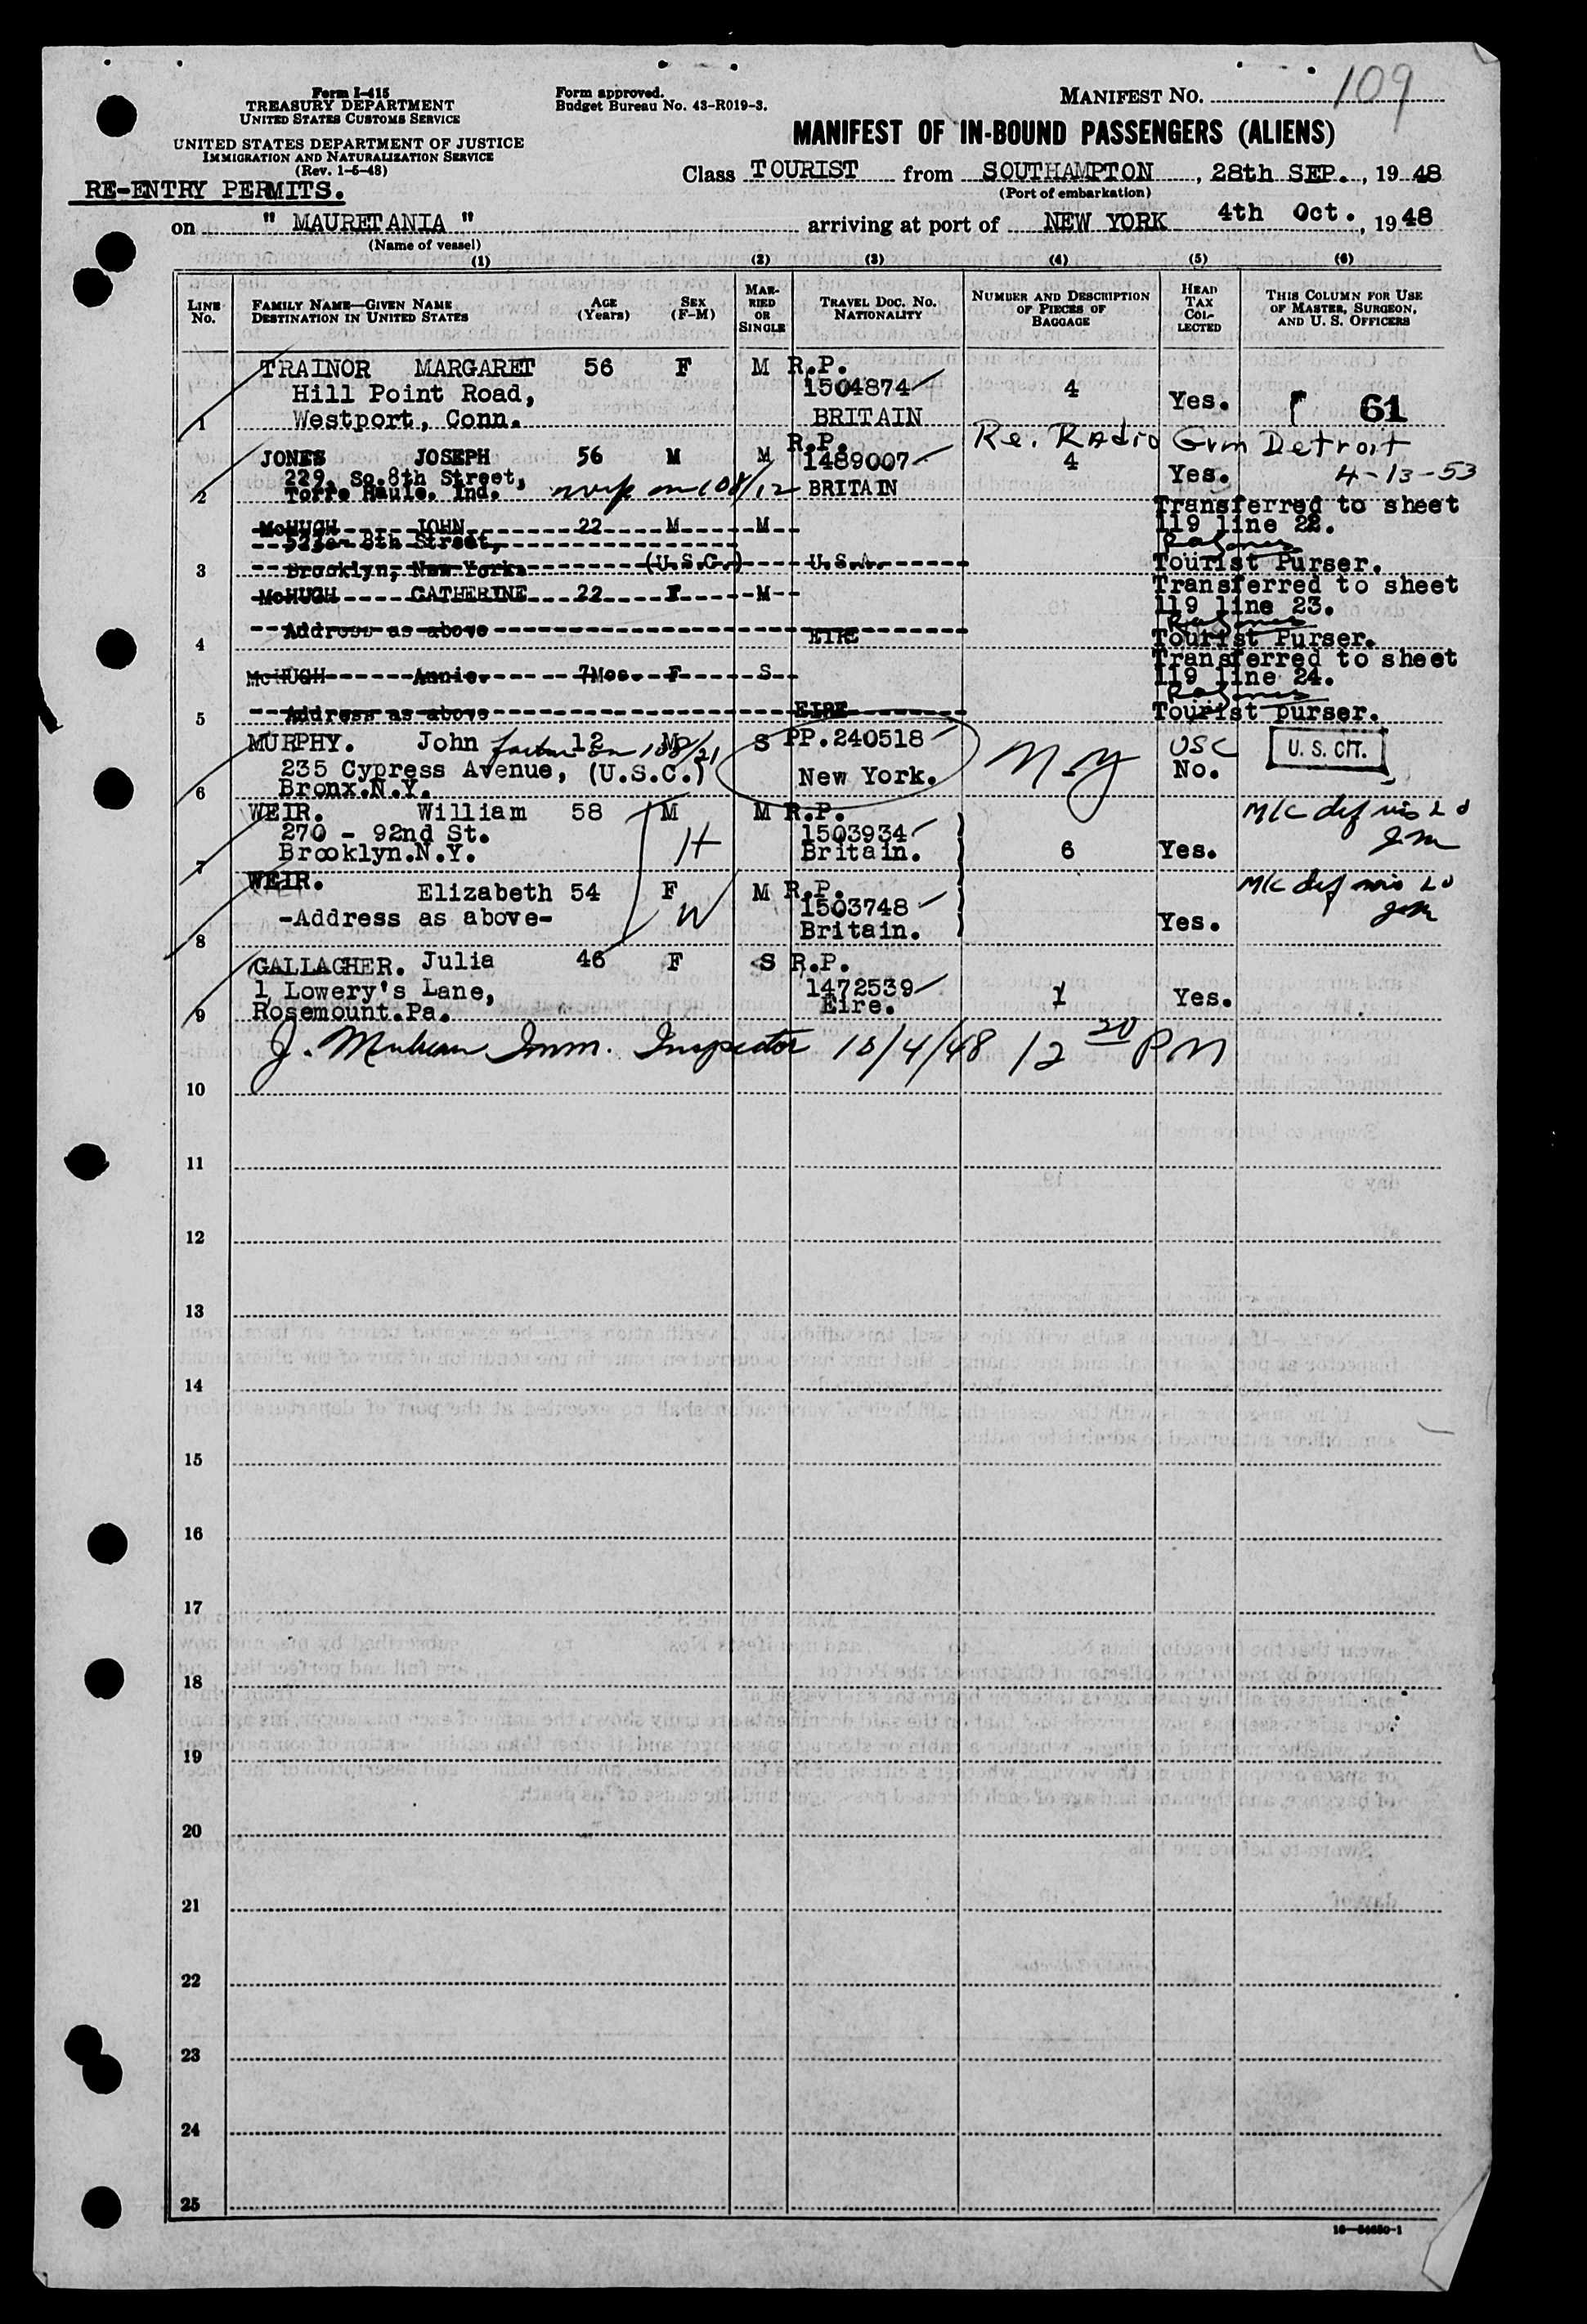 Form I-415
TREASURY DEPARTMENT
UNITED STATES CUSTOMS SERVICE
UNITED STATES DEPARTMENT OF JUSTICE
IMMIGRATION AND NATURALIZATION SERVICE
(Rev. 1-5-48)
RE-ENTRY PERMITS.
Form approved.
Budget Bureau No. 43-R019-3.
MANIFEST NO. 109
MANIFEST OF IN-BOUND PASSENGERS (ALIENS)
Class TOURIST from SOUTHAMPTON, 28th SEP., 19 48
(Port of embarkation)
on " MAURETANIA " arriving at port of NEW YORK 4th Oct., 19 48
(Name of vessel)
(1) (2) (3) (4) (5) (6)
LINE No. FAMILY NAME—GIVEN NAME DESTINATION IN UNITED STATES AGE (Years) SEX (F-M) MARRIED OR SINGLE TRAVEL DOC. NO. NATIONALITY NUMBER AND DESCRIPTION OF PIECES OF BAGGAGE HEAD TAX COLLECTED THIS COLUMN FOR USE OF MASTER, SURGEON, AND U. S. OFFICERS
TRAINOR MARGARET 56 F M R.P.
Hill Point Road, 1504874 4 Yes. 61
1 Westport, Conn. BRITAIN
Re. Radio Grm Detroit
JONES JOSEPH 56 M M R.P. 1489007 4 Yes. 4-13-53
229, So.8th Street,
2 Torre Haute. Ind. on 108/12 BRITAIN
McHUGH JOHN 22 M M Transferred to sheet
523 8th Street, 119 line 22.
3 Brooklyn, New York. (U.S.C.) U.S.A. Tourist Purser.
McHUGH CATHERINE 22 F M Transferred to sheet
119 line 23.
4 Address as above EIRE Tourist Purser.
McHUGH Annie. 7Mos. F S Transferred to sheet
119 line 24.
5 Address as above EIRE Tourist purser.
MURPHY. John father on 108/21 12 M S PP.240518 N-Y USC U. S. CIT.
235 Cypress Avenue, (U.S.C.) New York. No.
6 Bronx.N.Y.
WEIR. William 58 M M R.P. M/C def vis LO
270 - 92nd St. H 1503934 JM
7 Brooklyn.N.Y. Britain. 6 Yes.
WEIR. Elizabeth 54 F M R.P. M/C def vis LO
-Address as above- W 1503748 Yes. JM
8 Britain.
GALLAGHER. Julia 46 F S R.P.
1, Lowery's Lane, 1472539 1 Yes.
9 Rosemount.Pa. Eire.
J. Imm. Inspector 10/4/48 12 20 PM
10
11
12
13
14
15
16
17
18
19
20
21
22
23
24
25